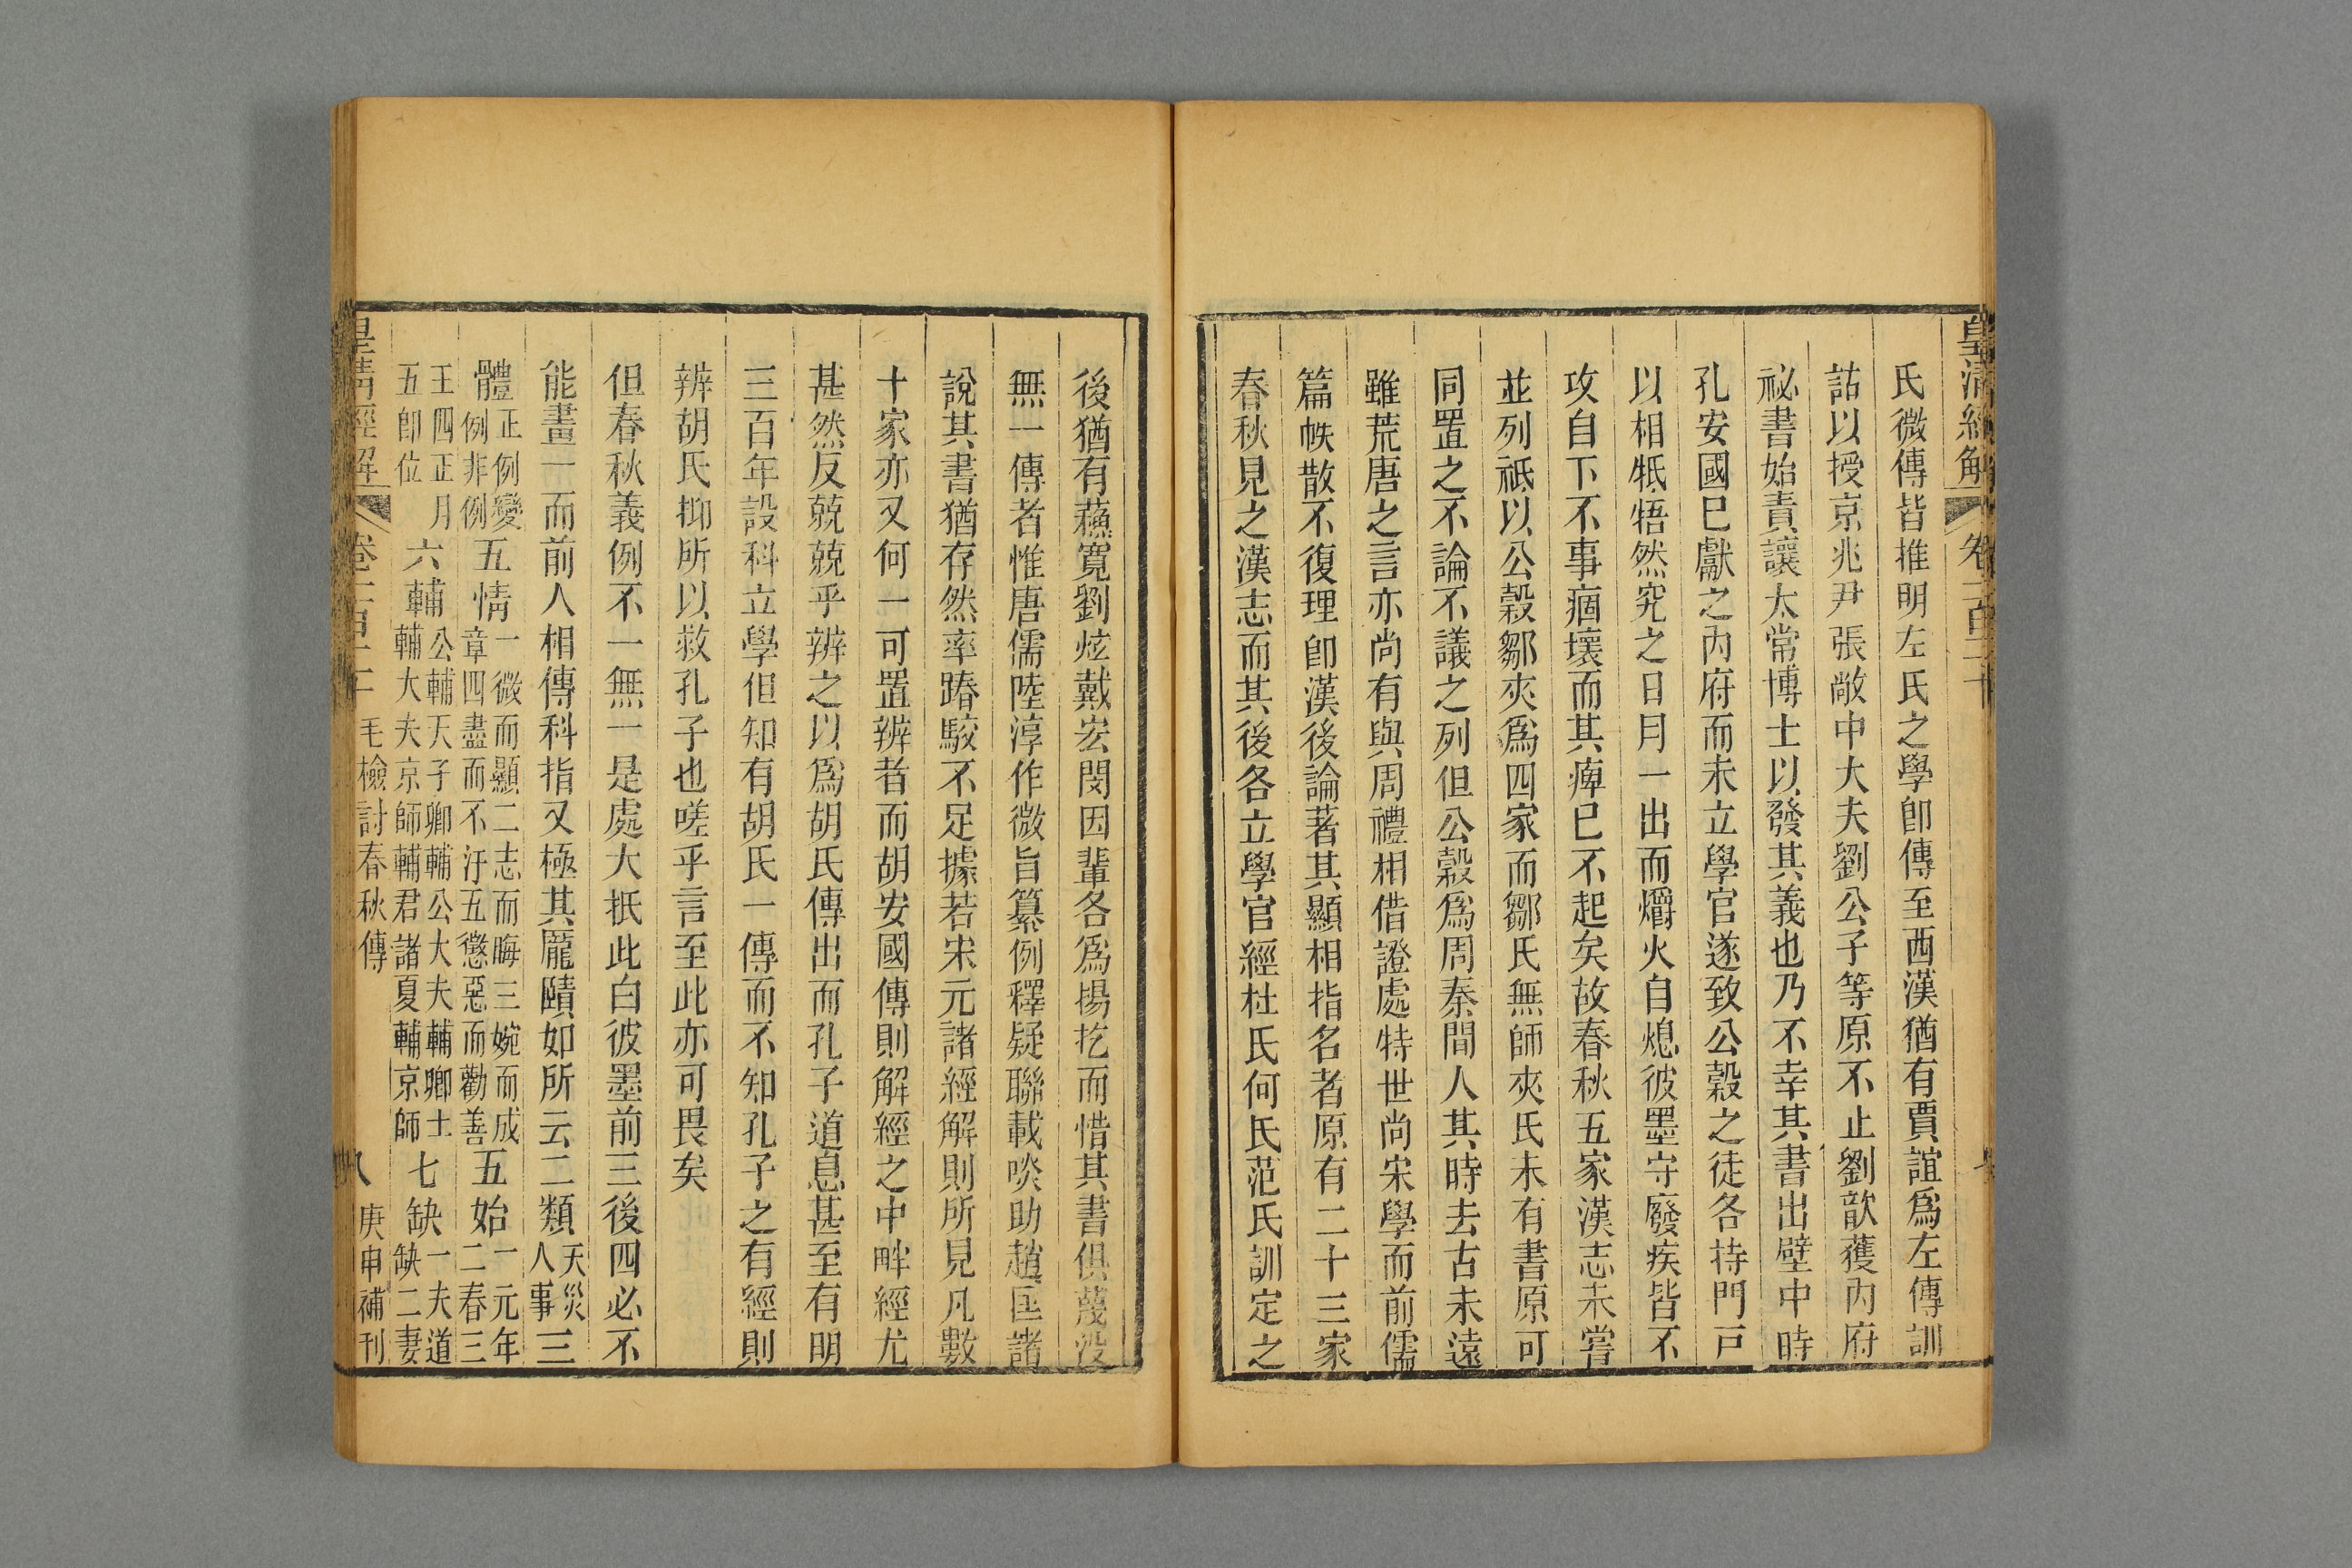 皇清經解 卷一百二十
氏微傳皆推明左氏之學卽傳至西漢猶有賈誼爲左傳訓
詁以授京兆尹張敞中大夫劉公子等原不止劉歆獲內府
祕書始責讓太常博士以發其義也乃不幸其書出壁中時
孔安國已獻之內府而未立學官遂致公穀之徒各持門戸
以相牴牾然究之日月一出而爝火自熄彼墨守廢疾皆不
攻自下不事痼壞而其痺已不起矣故春秋五家漢志未嘗
並列祇以公穀鄒夾爲四家而鄒氏無師夾氏未有書原可
同置之不論不議之列但公穀爲周秦間人其時去古未遠
雖荒唐之言亦尚有與周禮相借證處特世尚宋學而前儒
篇帙散不復理卽漢後論著其顯相指名者原有二十三家
春秋見之漢志而其後各立學官經杜氏何氏范氏訓定之
後猶有蘇寬劉炫戴宏閔因輩各爲揚扢而惜其書俱蔑没
無一傳者惟唐儒陸淳作微旨纂例釋疑聯載啖助趙匡諸
說其書猶存然率踳駮不足據若宋元諸經解則所見凡數
十家亦又何一可置辨者而胡安國傳則解經之中畔經尤
甚然反兢兢乎辨之以爲胡氏傳出而孔子道息甚至有明
三百年設科立學但知有胡氏一傳而不知孔子之有經則
辨胡氏抑所以救孔子也嗟乎言至此亦可畏矣
但春秋義例不一無一是處大抵此白彼墨前三後四必不
能畫一而前人相傳科指又極其龐賾如所云二類天災人事三
體正例變例非例五情一微而顯二志而晦三婉而成章四盡而不汙五懲惡而勸善五始一元年二春三
王四正月五卽位六輔公輔天子卿輔公大夫輔卿士輔大夫京師輔君諸夏輔京師七缺一夫道缺二妻
皇清經解 卷一百二十 毛檢討春秋傳 八 庚申補刊